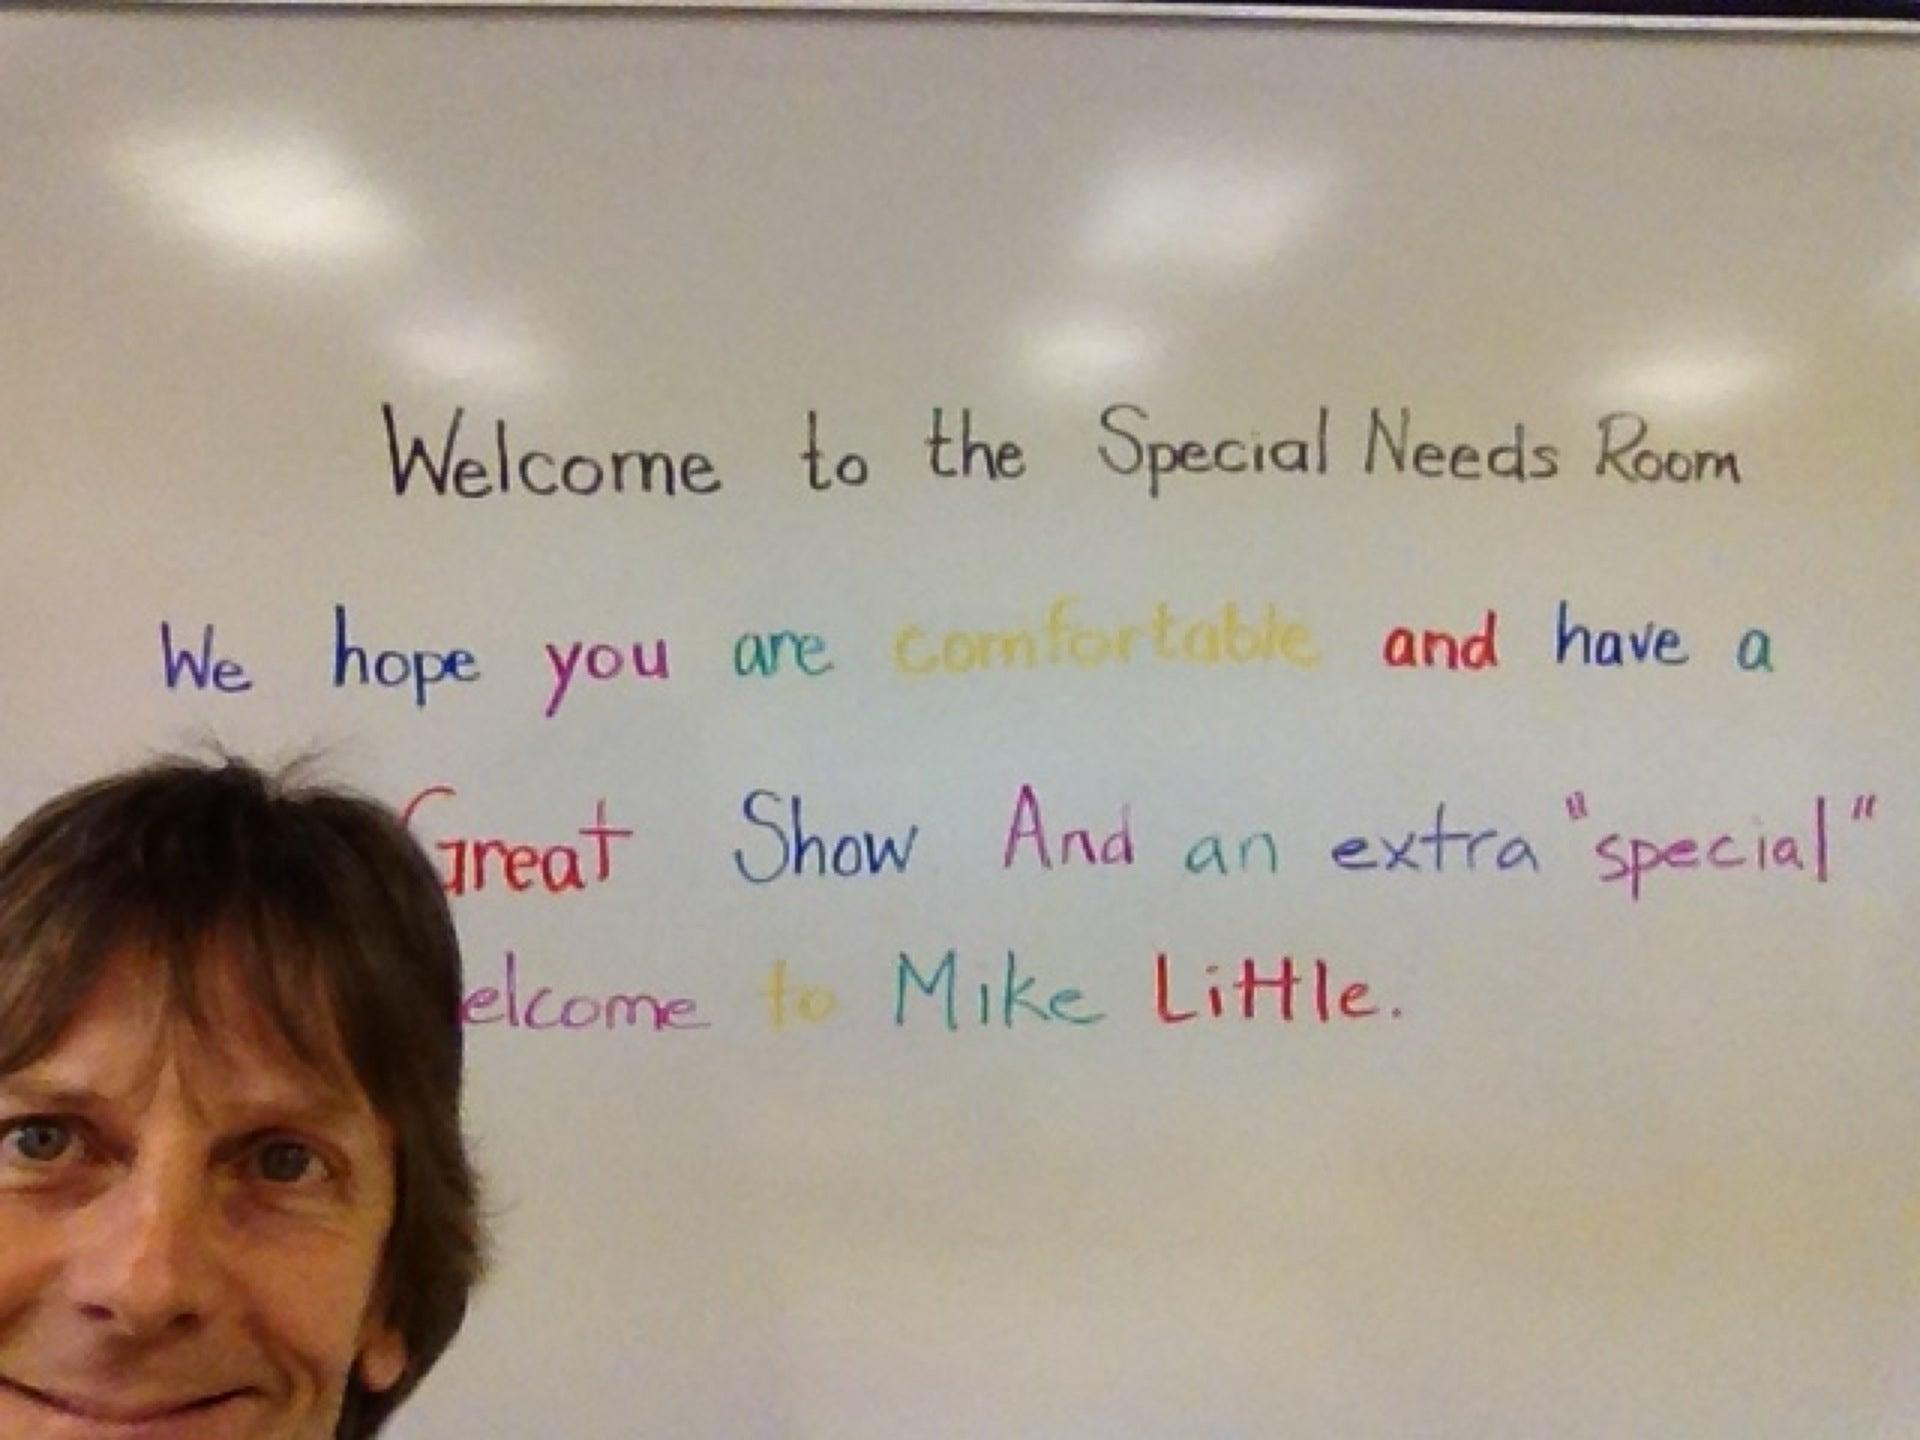 Welcome to the Special Needs Room
We hope you are comfortable and have a
Great Show And an extra "special"
elcome to Mike Little.